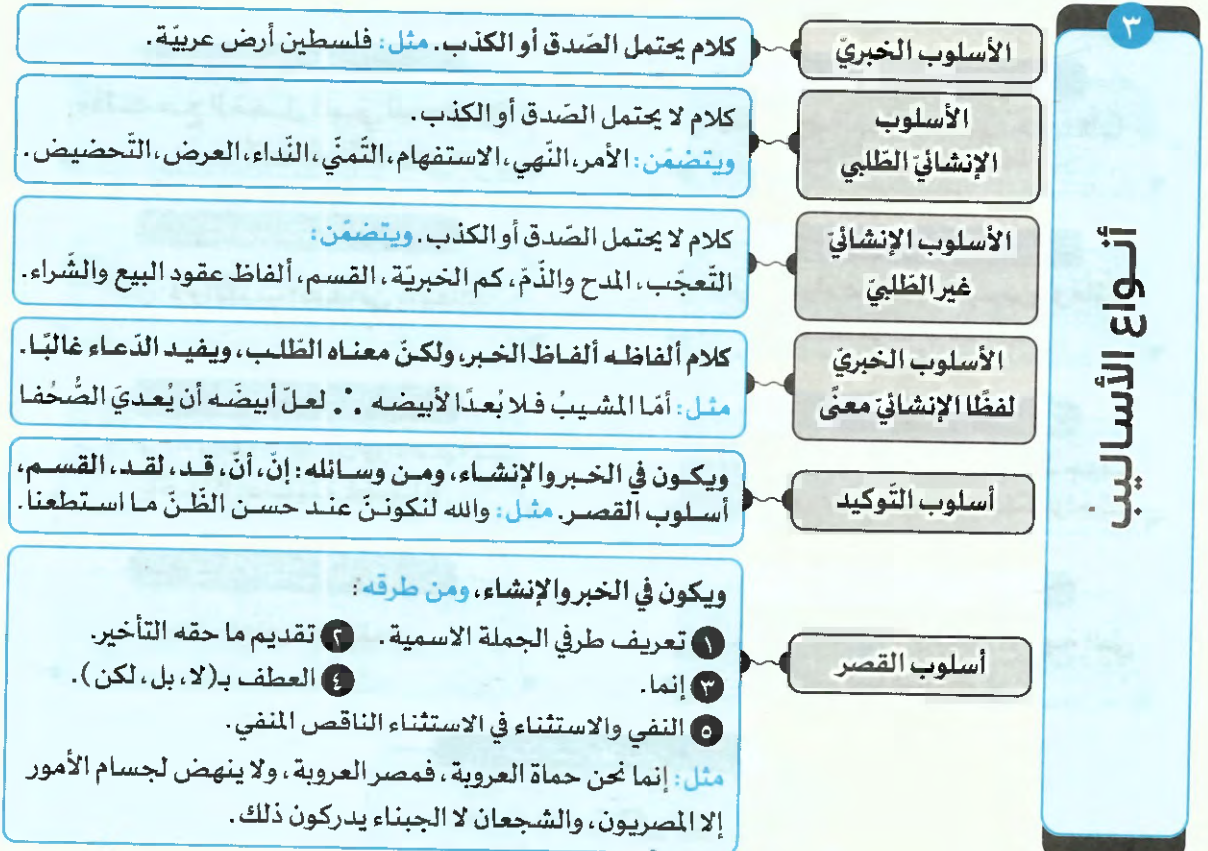 ٣
أنواع الأساليب
الأسلوب الخبريّ
كلام يحتمل الصّدق أو الكذب. مثل: فلسطين أرض عربيّة.
الأسلوب
الإنشائيّ الطّلبي
كلام لا يحتمل الصّدق أو الكذب.
ويتضمّن: الأمر، النّهي، الاستفهام، التّمنّي، النّداء، العرض، التّحضيض.
الأسلوب الإنشائيّ
غير الطّلبيّ
كلام لا يحتمل الصّدق أو الكذب. ويتضمّن:
التّعجّب، المدح والذّمّ، كم الخبريّة، القسم، ألفاظ عقود البيع والشّراء.
الأسلوب الخبريّ
لفظًا الإنشائيّ معنًى
كلام ألفاظه ألفاظ الخبر، ولكنّ معناه الطّلب، ويفيد الدّعاء غالبًا.
مثل: أمّا المشيبُ فلا بُعدًا لأبيضه ∴ لعلّ أبيضَه أن يُعديَ الصُّحُفا
أسلوب التّوكيد
ويكون في الخبر والإنشاء، ومن وسائله: إنّ، أنّ، قد، لقد، القسم،
أسلوب القصر. مثل: والله لنكوننّ عند حسن الظّنّ ما استطعنا.
أسلوب القصر
ويكون في الخبر والإنشاء، ومن طرقه:
١ تعريف طرفي الجملة الاسمية. ٢ تقديم ما حقه التأخير.
٣ إنما. ٤ العطف بـ(لا، بل، لكن).
٥ النفي والاستثناء في الاستثناء الناقص المنفي.
مثل: إنما نحن حماة العروبة، فمصر العروبة، ولا ينهض لجسام الأمور
إلا المصريون، والشجعان لا الجبناء يدركون ذلك.